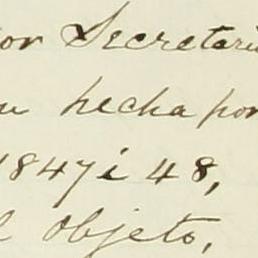 or Secretari
u hecha por
1847 i 48,
l Objeto,